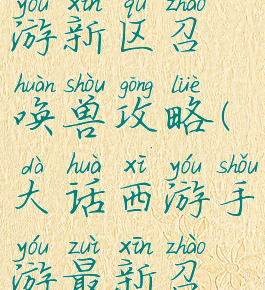 yóu xīn qū zhào
游新区召
huàn shòu gōng lüè
唤兽攻略(
dà huà xī yóu shǒu
大话西游手
yóu zuì xīn zhào
游最新召